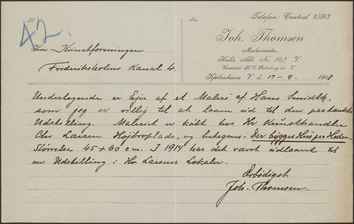 42.
Telefon: Central 8383
Joh. Thomsen
Malermester
København V. d. 17-9. 1918
Kunstforeningen
Frederiksholms Kanal 4.
Undertegnede er Ejer af et Maleri af Hans Smidth,
som jeg er villig til at laane ud til den paatænkte
Udstilling. Maleriet er købt hos Hr Kunsthandler
Chr. Larsen Højbroplads, og betegnes:
Størrelse 45 × 60 cm. I 1914 har det været udlaant til
en Udstilling i Hr Larsens Lokaler.
Ærbødigst
Joh. Thomsen